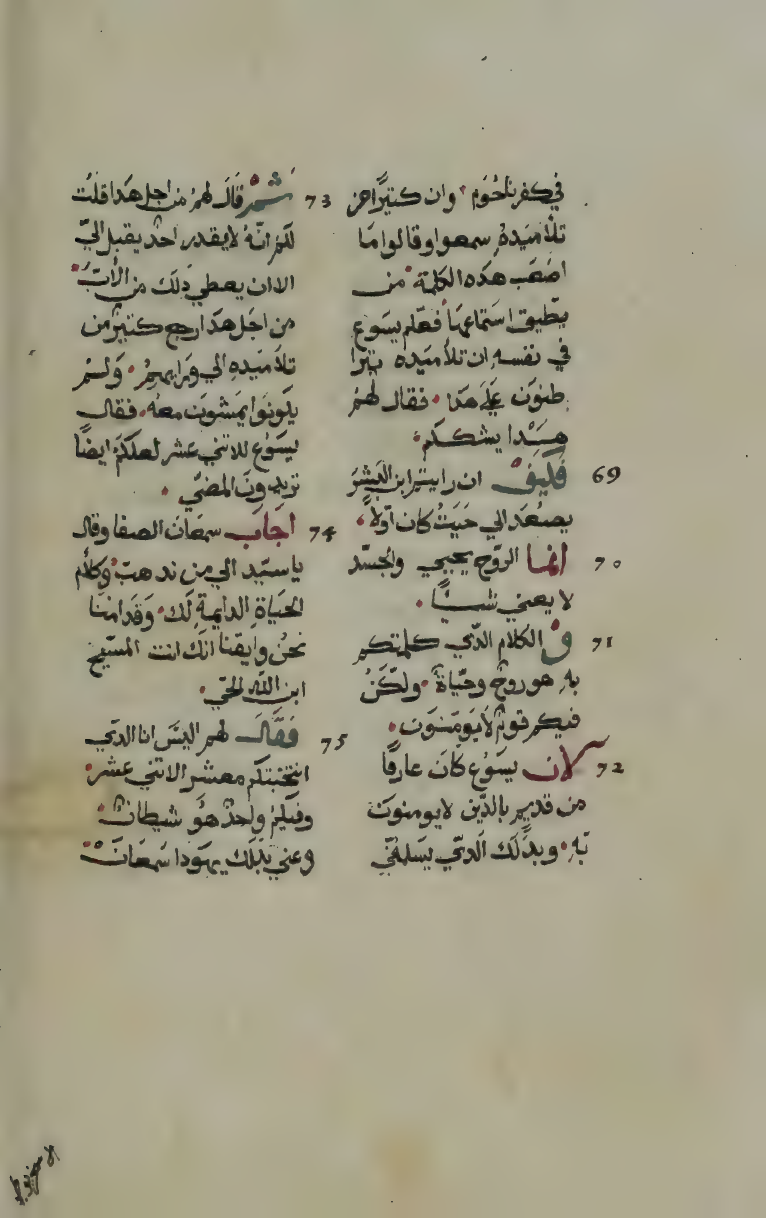 في كفرناحُوم وان كتيرًا من
تلاميده سمعوا وقالوا ما
اصعَب هده الكلمة من
يطيق استماعها فعلم يسوع
في نفسه ان تلاميده يترا
طنون علي هدا فقال لهم
هدا يشككم
69 فكيف ان رايتم ابن البشر
يصعد الي حيت كان اولا
70 انما الروح يحيي والجسد
لا يعني شيًا
71 و الكلام الدي كلمتكم
به هو روح وحياة ولكن
فيكم قوم لا يومنون
72 لان يسوع كان عارفًا
من قديم بالدين لا يومنون
به وبدلك الدي يسلمه
73 ثم قال لهم من اجل هدا قلت
لكم انه لا يقدر احد يقبل الي
الا ان يعطي دلك من الاب
من اجل هدا رجع كتير من
تلاميده الي ورايهم ولم
يكونوا يمشون معه فقال
يسوع للاتني عشر لعلكم ايضًا
تريدون المضي
74 اجاب سمعان الصفا وقال
يا سيد الي من ندهب وكلام
الحياة الدايمة لك وقد امنا
نحن وايقنا انك انت المسيح
ابن الله الحي
75 فقال لهم اليس انا الدي
انتخبتكم معشر الاتني عشر
وفيكم واحد هو شيطان
وعني بدلك يهودا سمعان